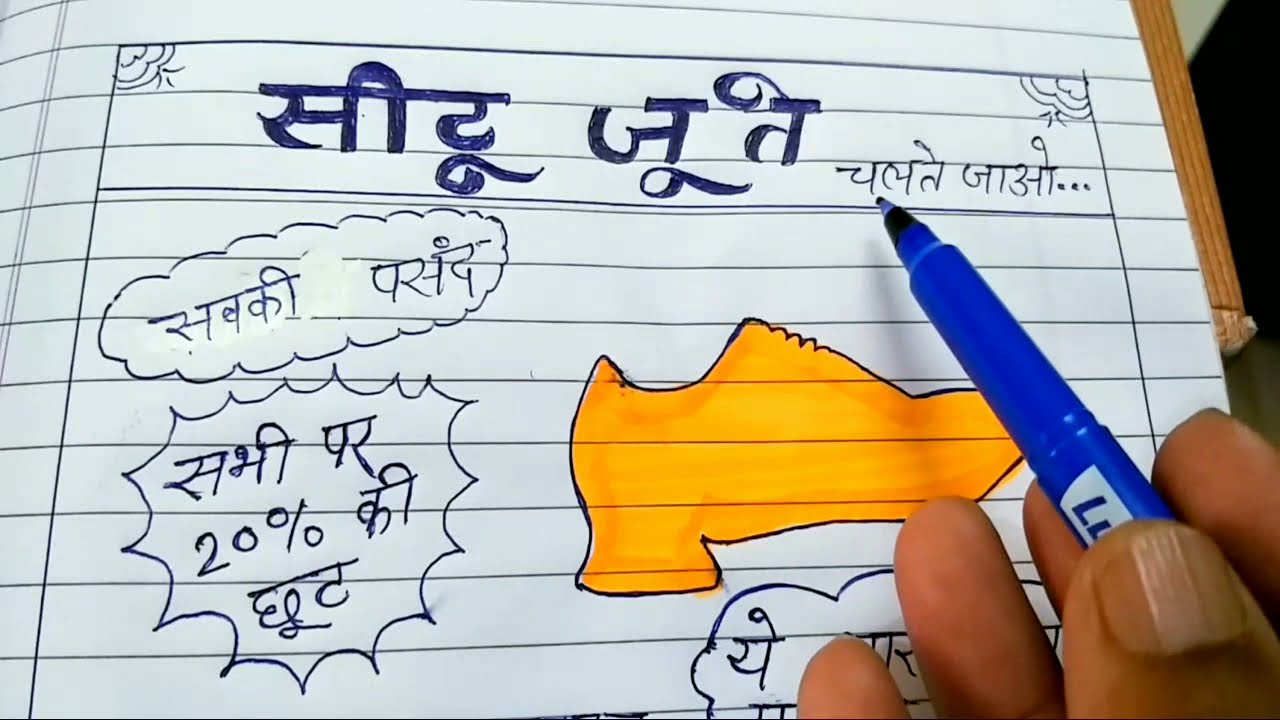 सीटू जूते
चलते जाओ...
सबकी पसंद
सभी पर
20% की
छूट
ये